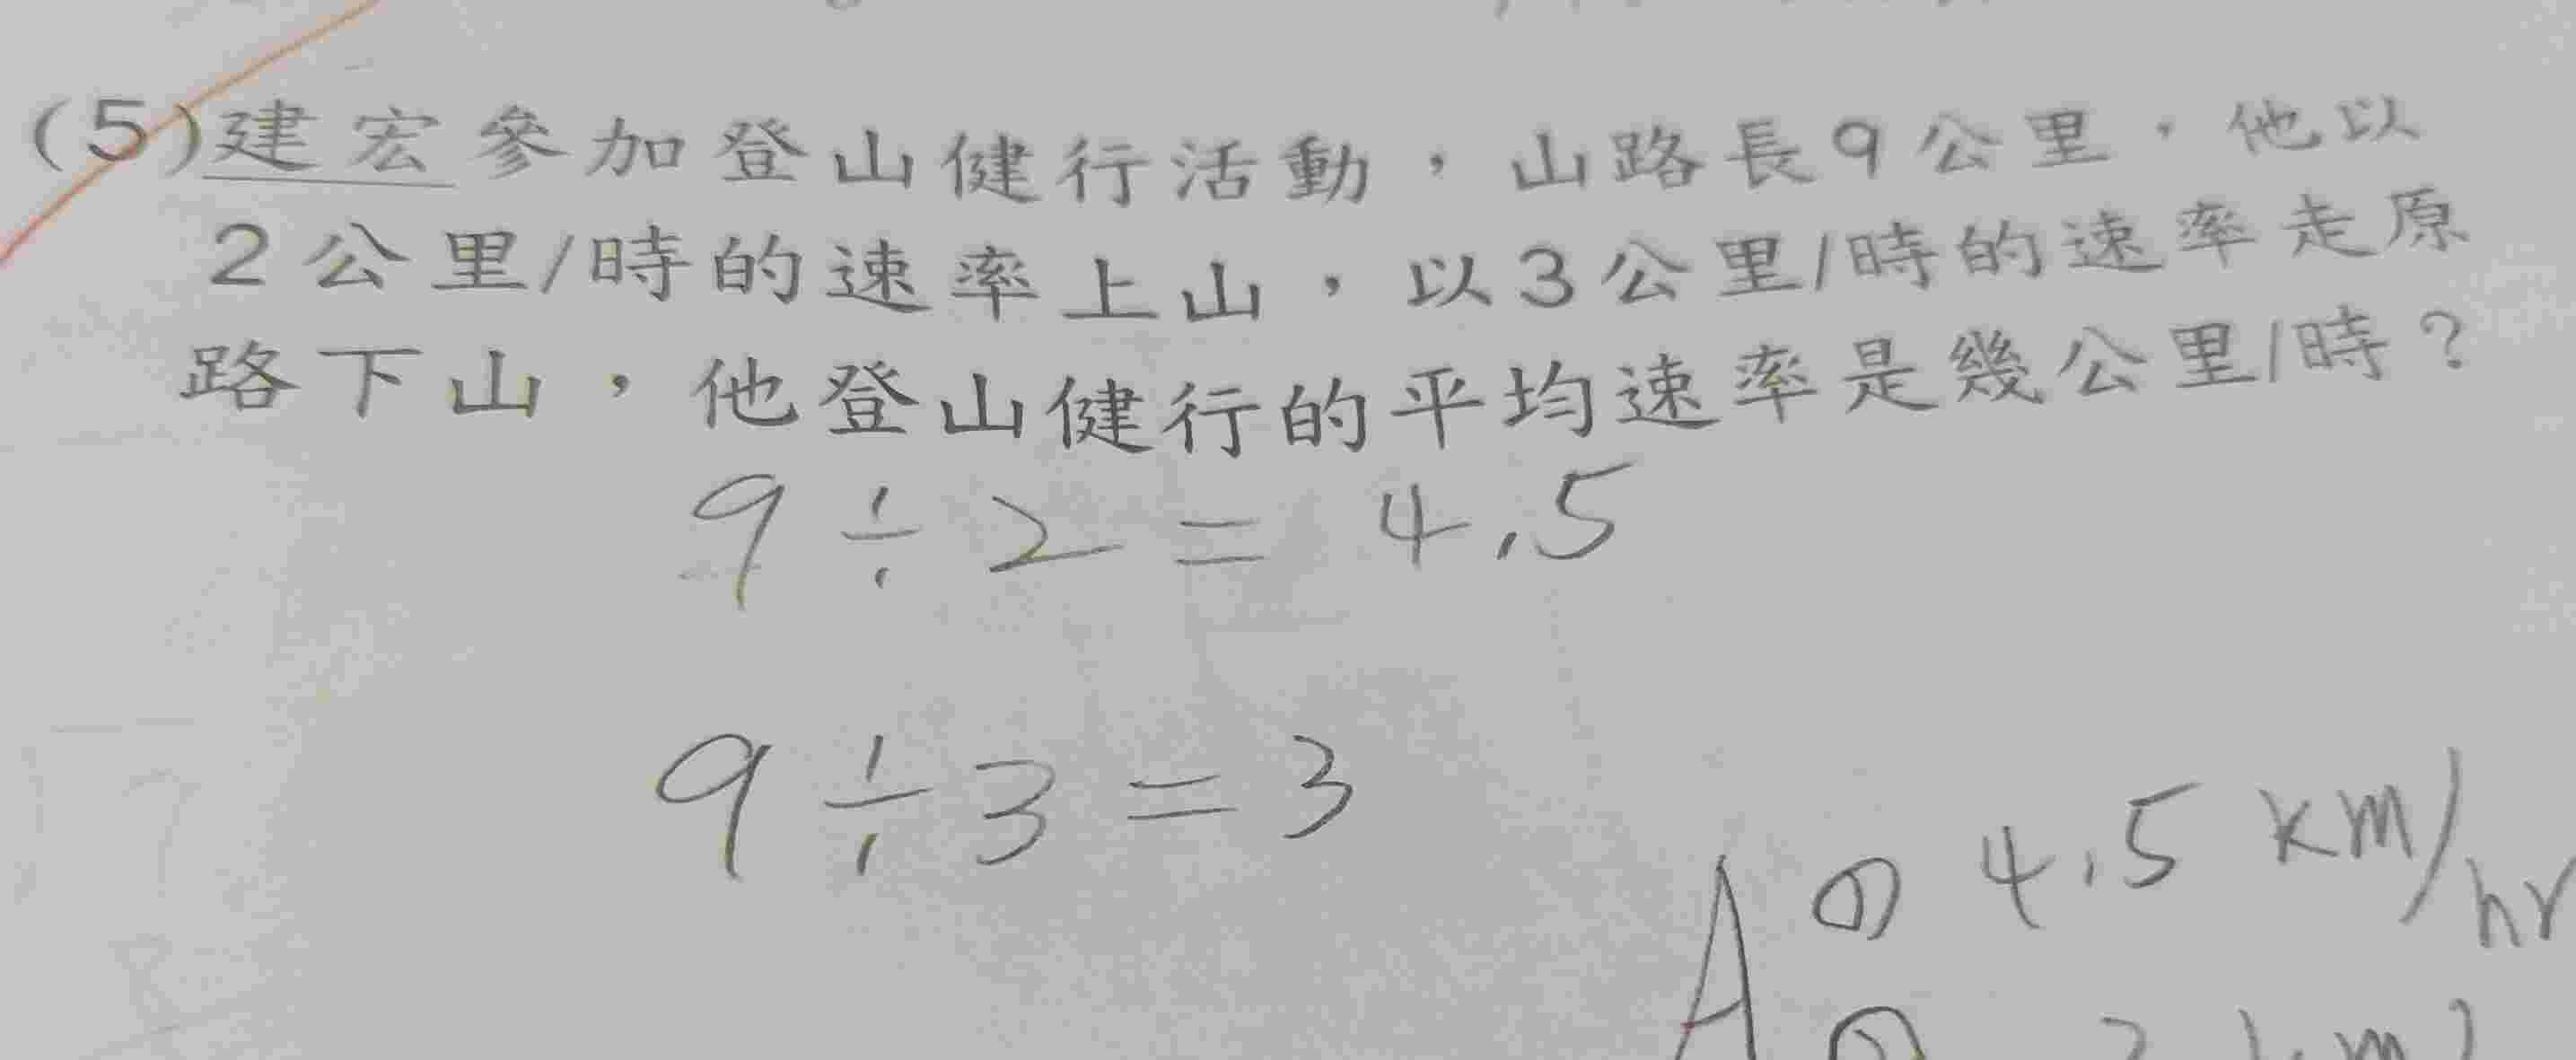 (5)建宏參加登山健行活動，山路長9公里，他以
2公里/時的速率上山，以3公里/時的速率走原
路下山，他登山健行的平均速率是幾公里/時？
9÷2=4.5
9÷3=3
A ① 4.5 km/hr